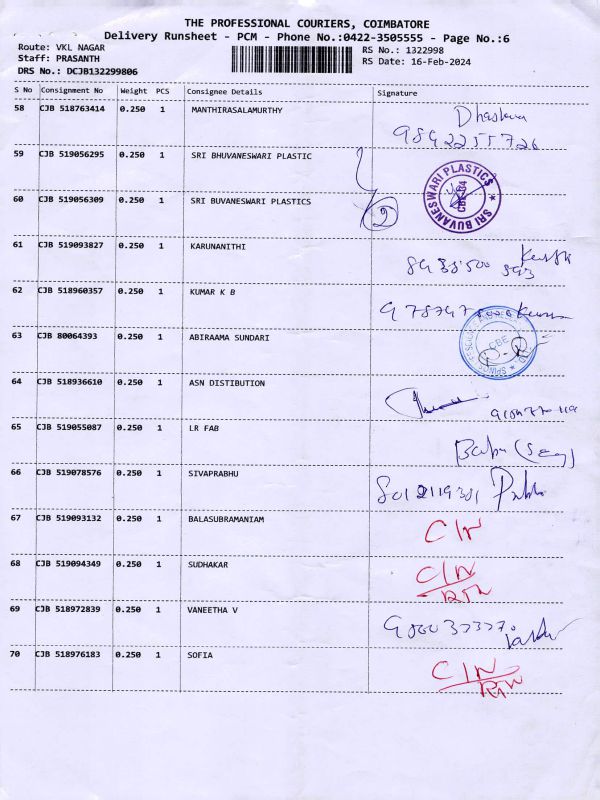 THE PROFESSIONAL COURIERS, COIMBATORE
Delivery Runsheet - PCM - Phone No.:0422-3505555 - Page No.:6
Route: VKL NAGAR
Staff: PRASANTH
DRS No.: DCJB132299806
RS No.: 1322998
RS Date: 16-Feb-2024
S No Consignment No Weight PCS Consignee Details Signature
58 CJB 518763414 0.250 1 MANTHIRASALAMURTHY
9842255726
59 CJB 519056295 0.250 1 SRI BHUVANESWARI PLASTIC
60 CJB 519056309 0.250 1 SRI BUVANESWARI PLASTICS
2
SRI BUVANESWARI PLASTICS
61 CJB 519093827 0.250 1 KARUNANITHI
62 CJB 518960357 0.250 1 KUMAR K B
63 CJB 80064393 0.250 1 ABIRAAMA SUNDARI
CBE
64 CJB 518936610 0.250 1 ASN DISTIBUTION
65 CJB 519055087 0.250 1 LR FAB
Babu
66 CJB 519078576 0.250 1 SIVAPRABHU
Prabhu
67 CJB 519093132 0.250 1 BALASUBRAMANIAM
C/N
68 CJB 519094349 0.250 1 SUDHAKAR
C/N
69 CJB 518972839 0.250 1 VANEETHA V
70 CJB 518976183 0.250 1 SOFIA
C/N